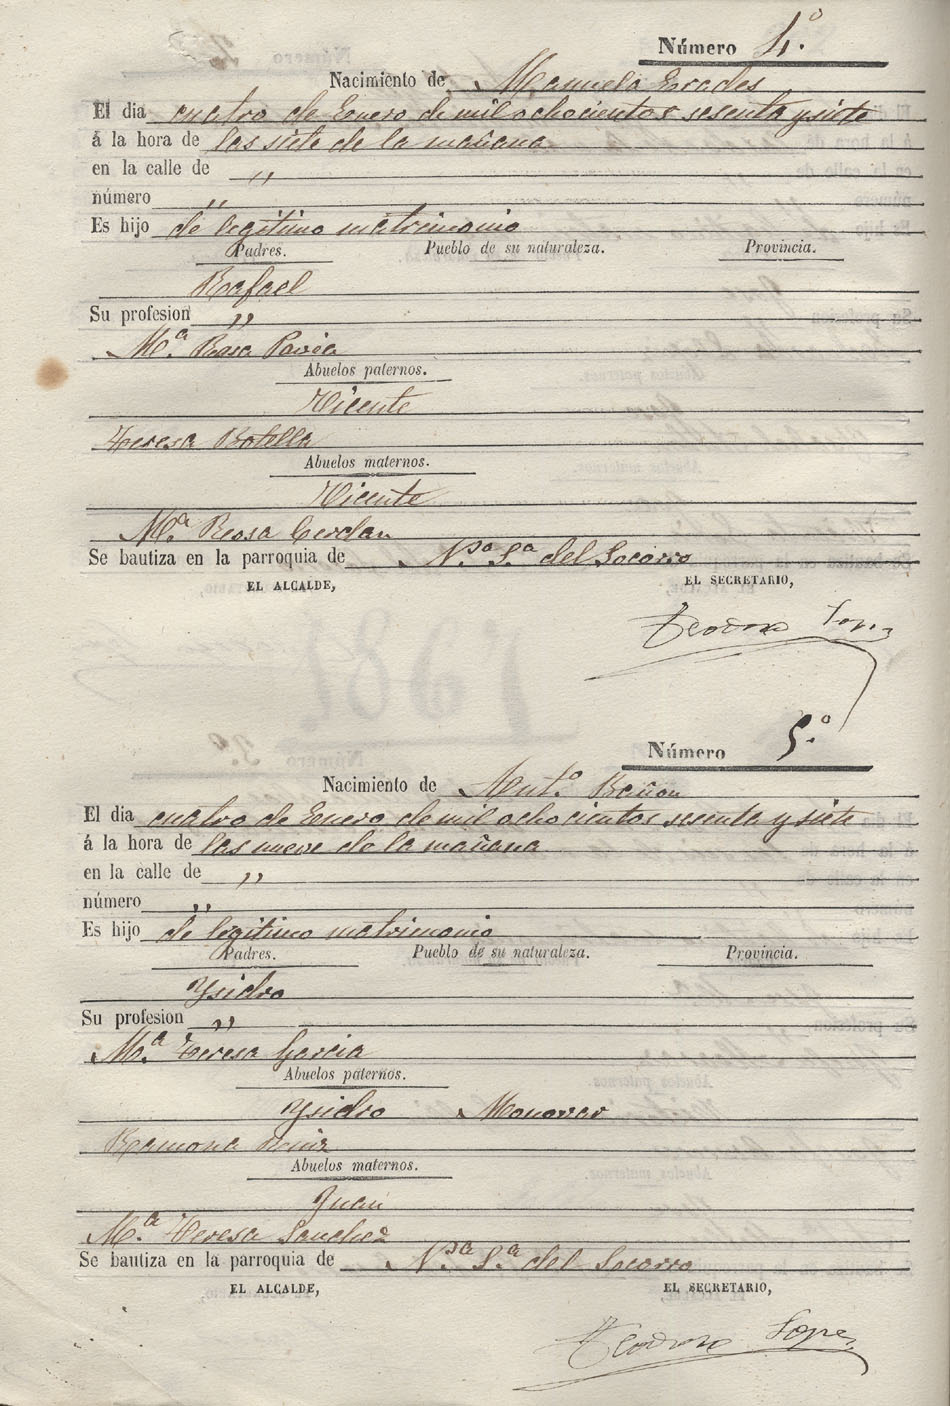 Número 4.º
Nacimiento de Manuela Prades
El dia cuatro de Enero de mil ochocientos sesenta y siete
á la hora de las siete de la mañana
en la calle de "
número "
Es hijo de legitimo matrimonio
Padres. Pueblo de su naturaleza. Provincia.
Rafael
Su profesion "
M.ª Rosa
Abuelos paternos.
Vicente
Teresa Botella
Abuelos maternos.
Vicente
M.ª Rosa Cerdan
Se bautiza en la parroquia de N.ª S.ª del Socorro
EL ALCALDE, EL SECRETARIO,
Teodoro Lopez
Número 5.º
Nacimiento de Ant.º Bañon
El dia cuatro de Enero de mil ochocientos sesenta y siete
á la hora de las nueve de la mañana
en la calle de "
número "
Es hijo de legitimo matrimonio
Padres. Pueblo de su naturaleza. Provincia.
Ysidro
Su profesion "
M.ª Teresa Garcia
Abuelos paternos.
Ysidro Monovar
Ramona Ruiz
Abuelos maternos.
Juan
M.ª Teresa Sanchez
Se bautiza en la parroquia de N.ª S.ª del Socorro
EL ALCALDE, EL SECRETARIO,
Teodoro Lopez